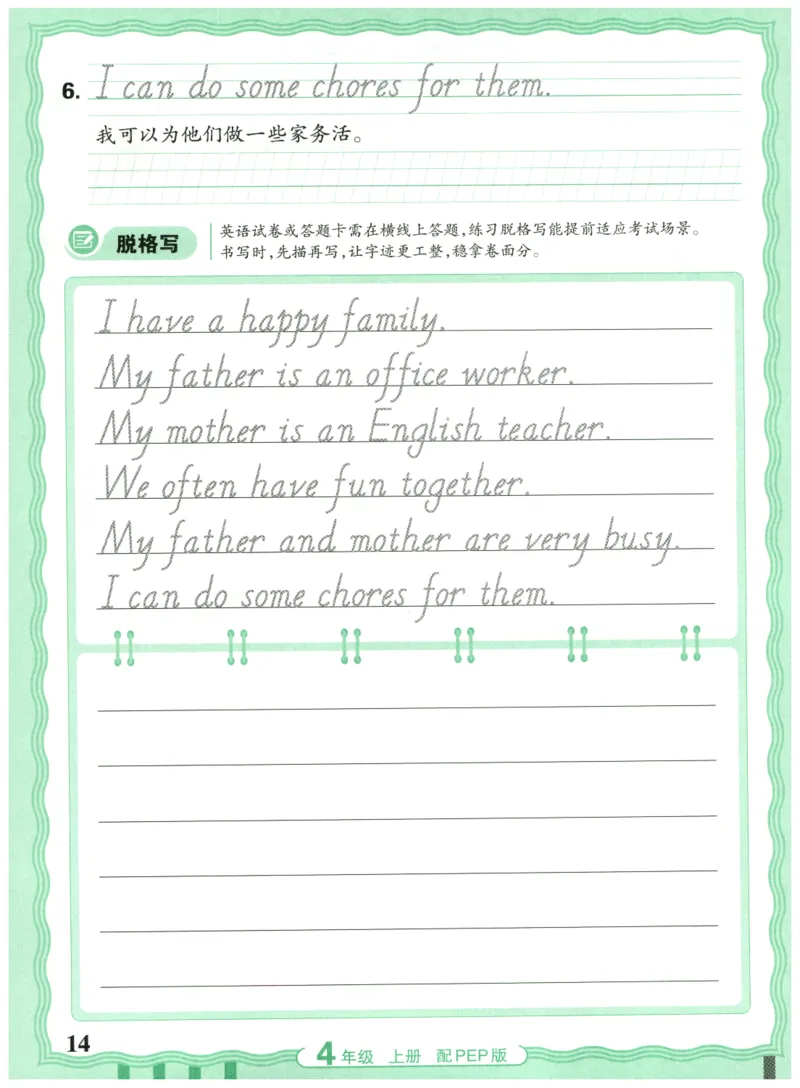 6. I can do some chores for them.
我可以为他们做一些家务活。
脱格写
英语试卷或答题卡需在横线上答题,练习脱格写能提前适应考试场景。
书写时,先描再写,让字迹更工整,稳拿卷面分。
I have a happy family.
My father is an office worker.
My mother is an English teacher.
We often have fun together.
My father and mother are very busy.
I can do some chores for them.
14
4年级 上册 配PEP版